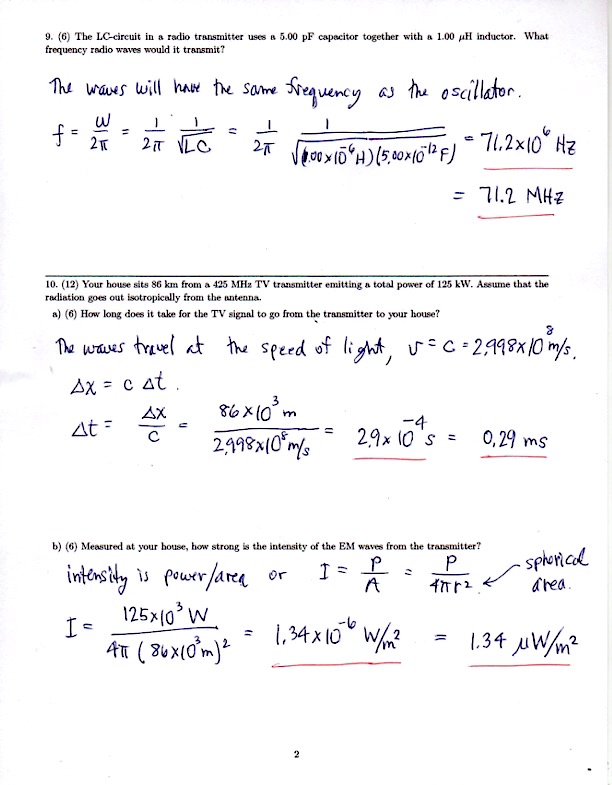 9. (6) The LC-circuit in a radio transmitter uses a 5.00 pF capacitor together with a 1.00 μH inductor. What
frequency radio waves would it transmit?
The waves will have the same frequency as the oscillator.
f = ω/2π = 1/2π 1/√LC = 1/2π 1/√(1.00×10⁻⁶H)(5.00×10⁻¹²F) = 71.2×10⁶ Hz
= 71.2 MHz
10. (12) Your house sits 86 km from a 425 MHz TV transmitter emitting a total power of 125 kW. Assume that the
radiation goes out isotropically from the antenna.
a) (6) How long does it take for the TV signal to go from the transmitter to your house?
The waves travel at the speed of light, v = c = 2.998×10⁸ m/s.
Δx = c Δt.
Δt = Δx/c = 86×10³ m/2.998×10⁸ m/s = 2.9×10⁻⁴ s = 0.29 ms
b) (6) Measured at your house, how strong is the intensity of the EM waves from the transmitter?
intensity is power/area or I = P/A = P/4πr² spherical area.
I = 125×10³ W/4π (86×10³m)² = 1.34×10⁻⁶ W/m² = 1.34 μW/m²
2